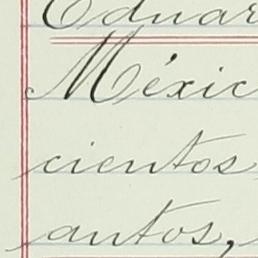 Eduar
Méxic
cientos
antos,